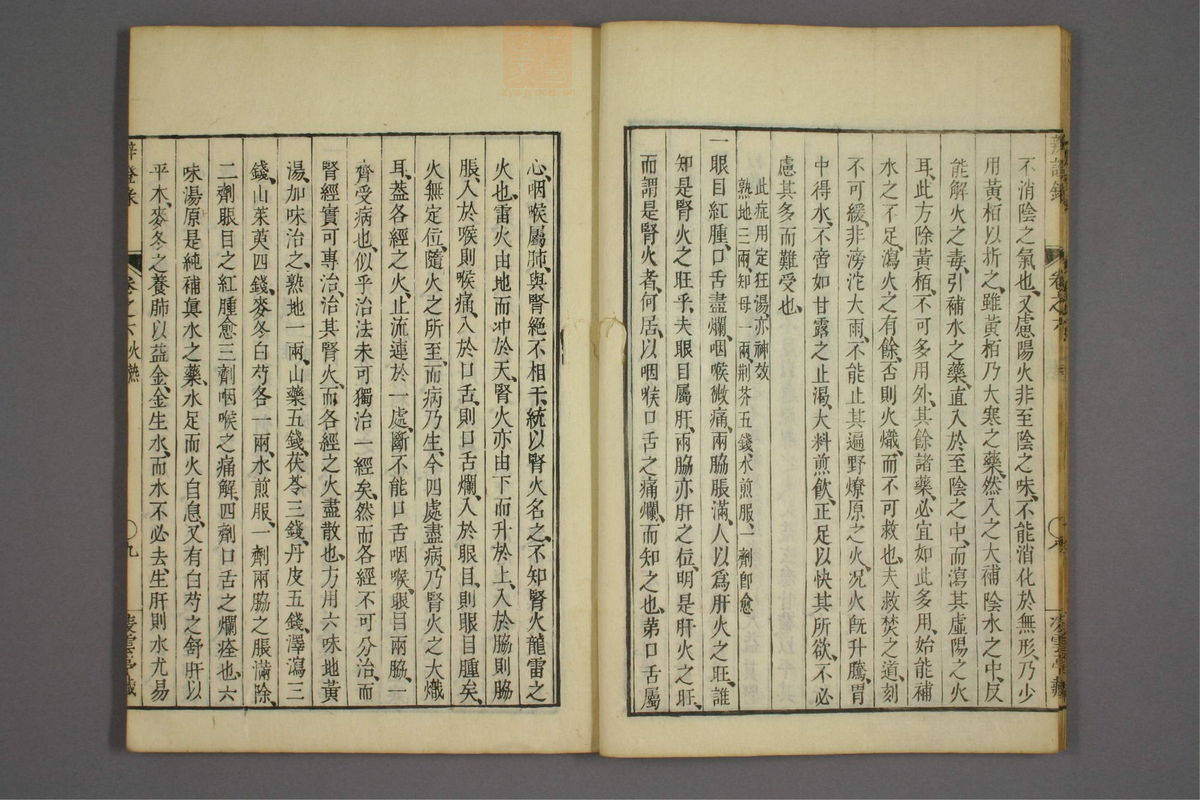 不消陰之氣也又慮陽火非至陰之味不能消化於無形乃少
用黃栢以折之雖黃栢乃大寒之藥然入之大補陰水之中反
能解火之毒引補水之藥直入於至陰之中而瀉其虛陽之火
耳此方除黃栢不可多用外其餘諸藥必宜如此多用始能補
水之不足瀉火之有餘否則火熾而不可救也夫救焚之道刻
不可緩非滂沱大雨不能止其遍野燎原之火况火旣升騰胃
中得水不啻如甘露之止渴大料煎飲正足以快其所欲不必
慮其多而難受也
此症用定狂湯亦神效
熟地三兩知母一兩荆芥五錢水煎服一劑卽愈
一眼目紅腫口舌盡爛咽喉微痛兩脇脹滿人以爲肝火之旺誰
知是腎火之旺乎夫眼目屬肝兩脇亦肝之位明是肝火之旺
而謂是腎火者何居以咽喉口舌之痛爛而知之也第口舌屬
心咽喉屬肺與腎絕不相干統以腎火名之不知腎火龍雷之
火也雷火由地而冲於天腎火亦由下而升於上入於脇則脇
脹入於喉則喉痛入於口舌則口舌爛入於眼目則眼目腫矣
火無定位隨火之所至而病乃生今四處盡病乃腎火之大熾
耳葢各經之火止流連於一處斷不能口舌咽喉眼目兩脇一
齊受病也似乎治法未可獨治一經矣然而各經不可分治而
腎經實可專治治其腎火而各經之火盡散也方用六味地黃
湯加味治之熟地一兩山藥五錢茯苓三錢丹皮五錢澤瀉三
錢山茱萸四錢麥冬白芍各一兩水煎服一劑兩脇之脹滿除
二劑眼目之紅腫愈三劑咽喉之痛解四劑口舌之爛痊也六
味湯原是純補眞水之藥水足而火自息又有白芍之舒肝以
平木麥冬之養肺以益金金生水而水不必去生肝則水尤易
辛證录 卷之六火熱 〇九